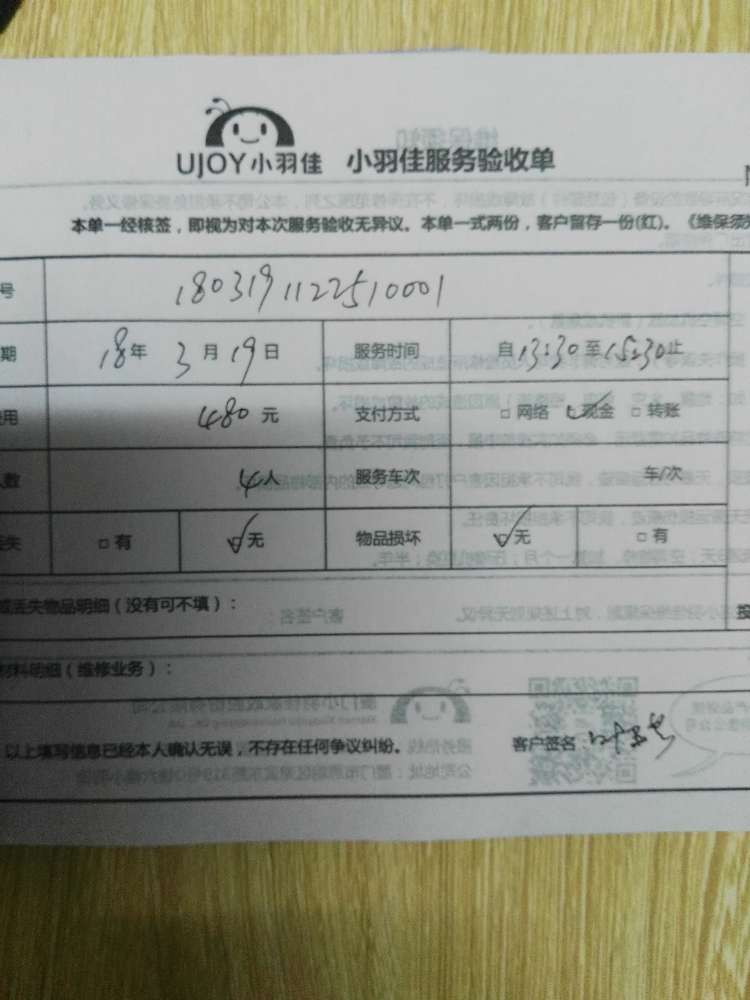 UJOY小羽佳 小羽佳服务验收单
本单一经核签，即视为对本次服务验收无异议。本单一式两份，客户留存一份(红)。《维保须知
号 180319112251 0001
期 18年 3月19日 服务时间 自13:30至15:30止
用 480元 支付方式 □网络 ☑现金 □转账
人数 4人 服务车次 车/次
丢失 □有 ☑无 物品损坏 ☑无 □有
或丢失物品明细（没有可不填）：
材料明细（维修业务）：
以上填写信息已经本人确认无误，不存在任何争议纠纷。 客户签名：